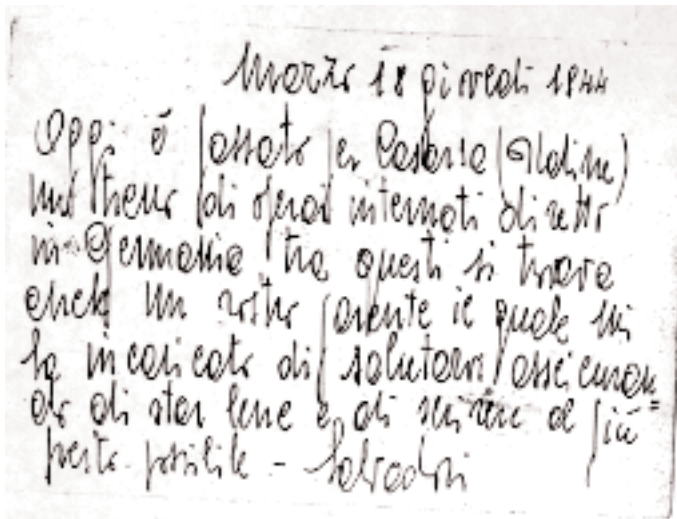 Marzo 18 giovedi 1944
Oggi è passato per Casarsa (Udine)
un treno di operai internati diretto
in Germania tra questi si trova
anche un vostro parente il quale mi
ha incaricato di salutarvi assicuran=
do di star bene e di scrivere al più
presto possibile - Salvadori